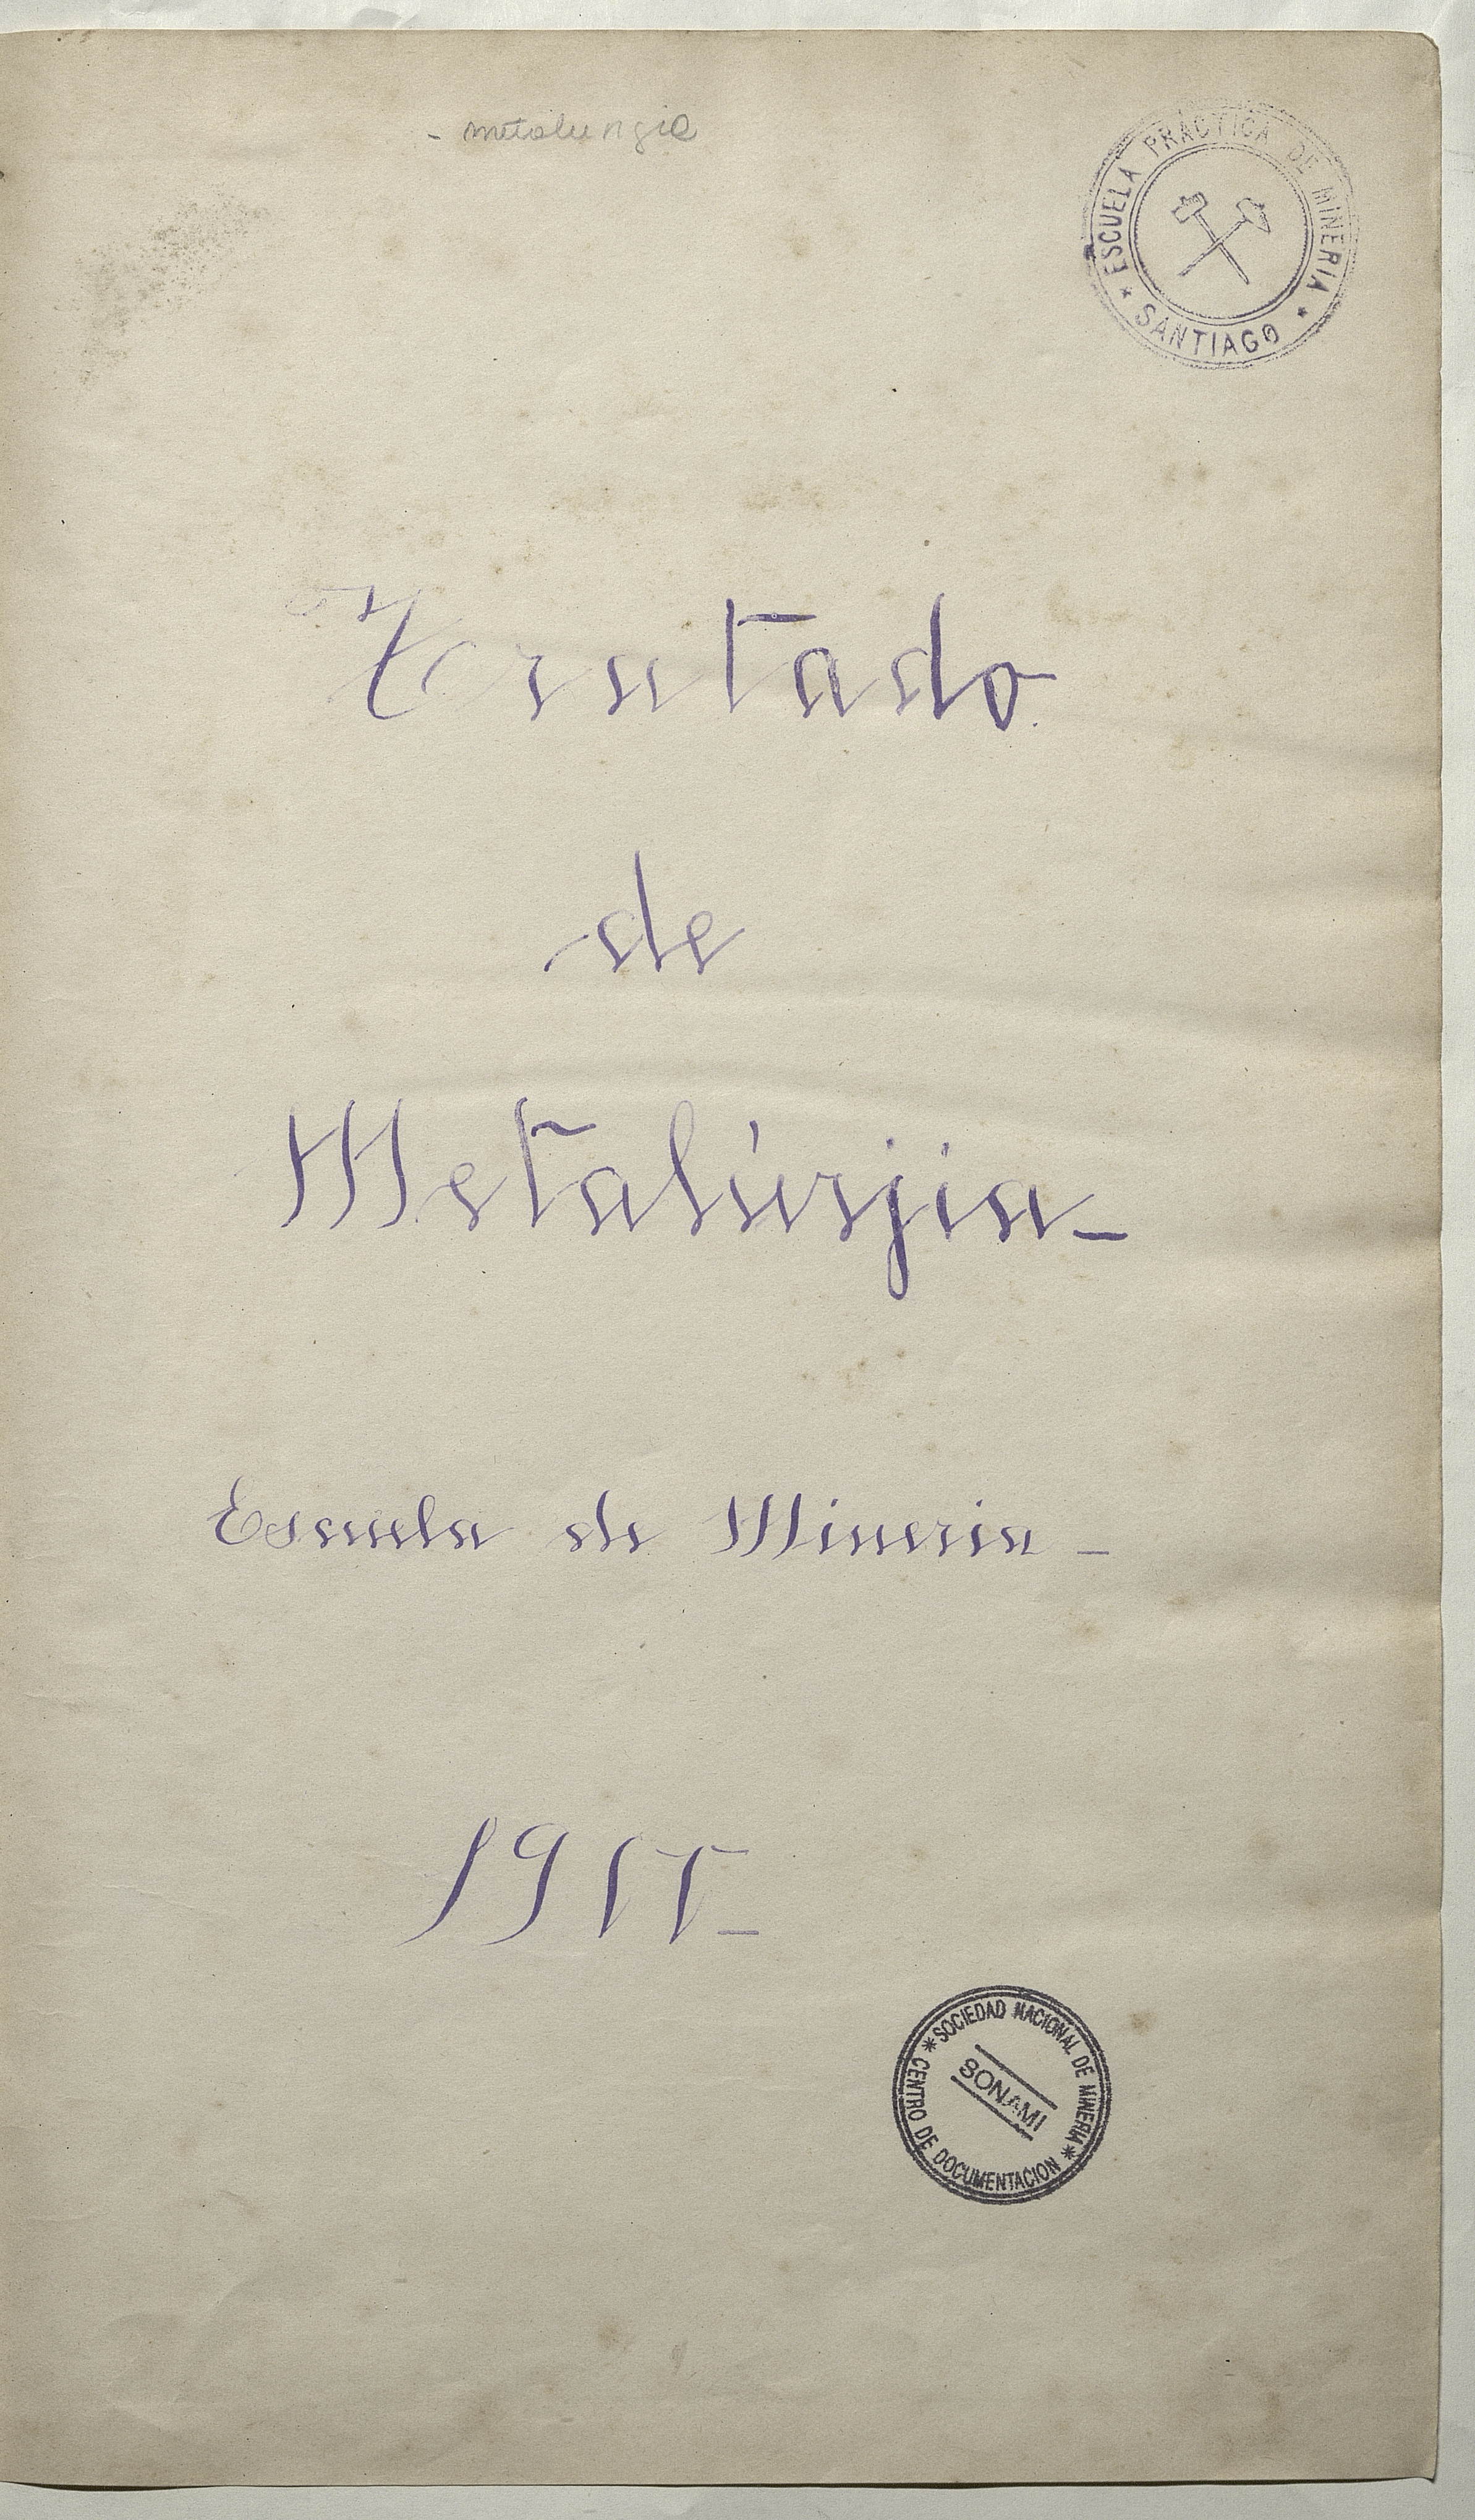 - metalurgia
ESCUELA PRÁCTICA DE MINERIA
* SANTIAGO *
Tratado
de
Metalúrjia_
Escuela de Mineria _
SOCIEDAD NACIONAL DE MINERIA
SONAMI
* CENTRO DE DOCUMENTACION *